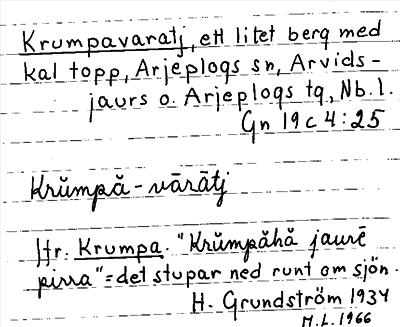 Krumpavaratj, ett litet berg med
kal topp, Arjeplogs sn, Arvids-
jaurs o. Arjeplogs tg, Nb. l.
Gn 19 c 4:25
Krŭmpă-vārātj
Jfr. Krumpa. "Krŭmpăhă jaurē
pirra" = det stupar ned runt om sjön.
H. Grundström 1934
M.L. 1966